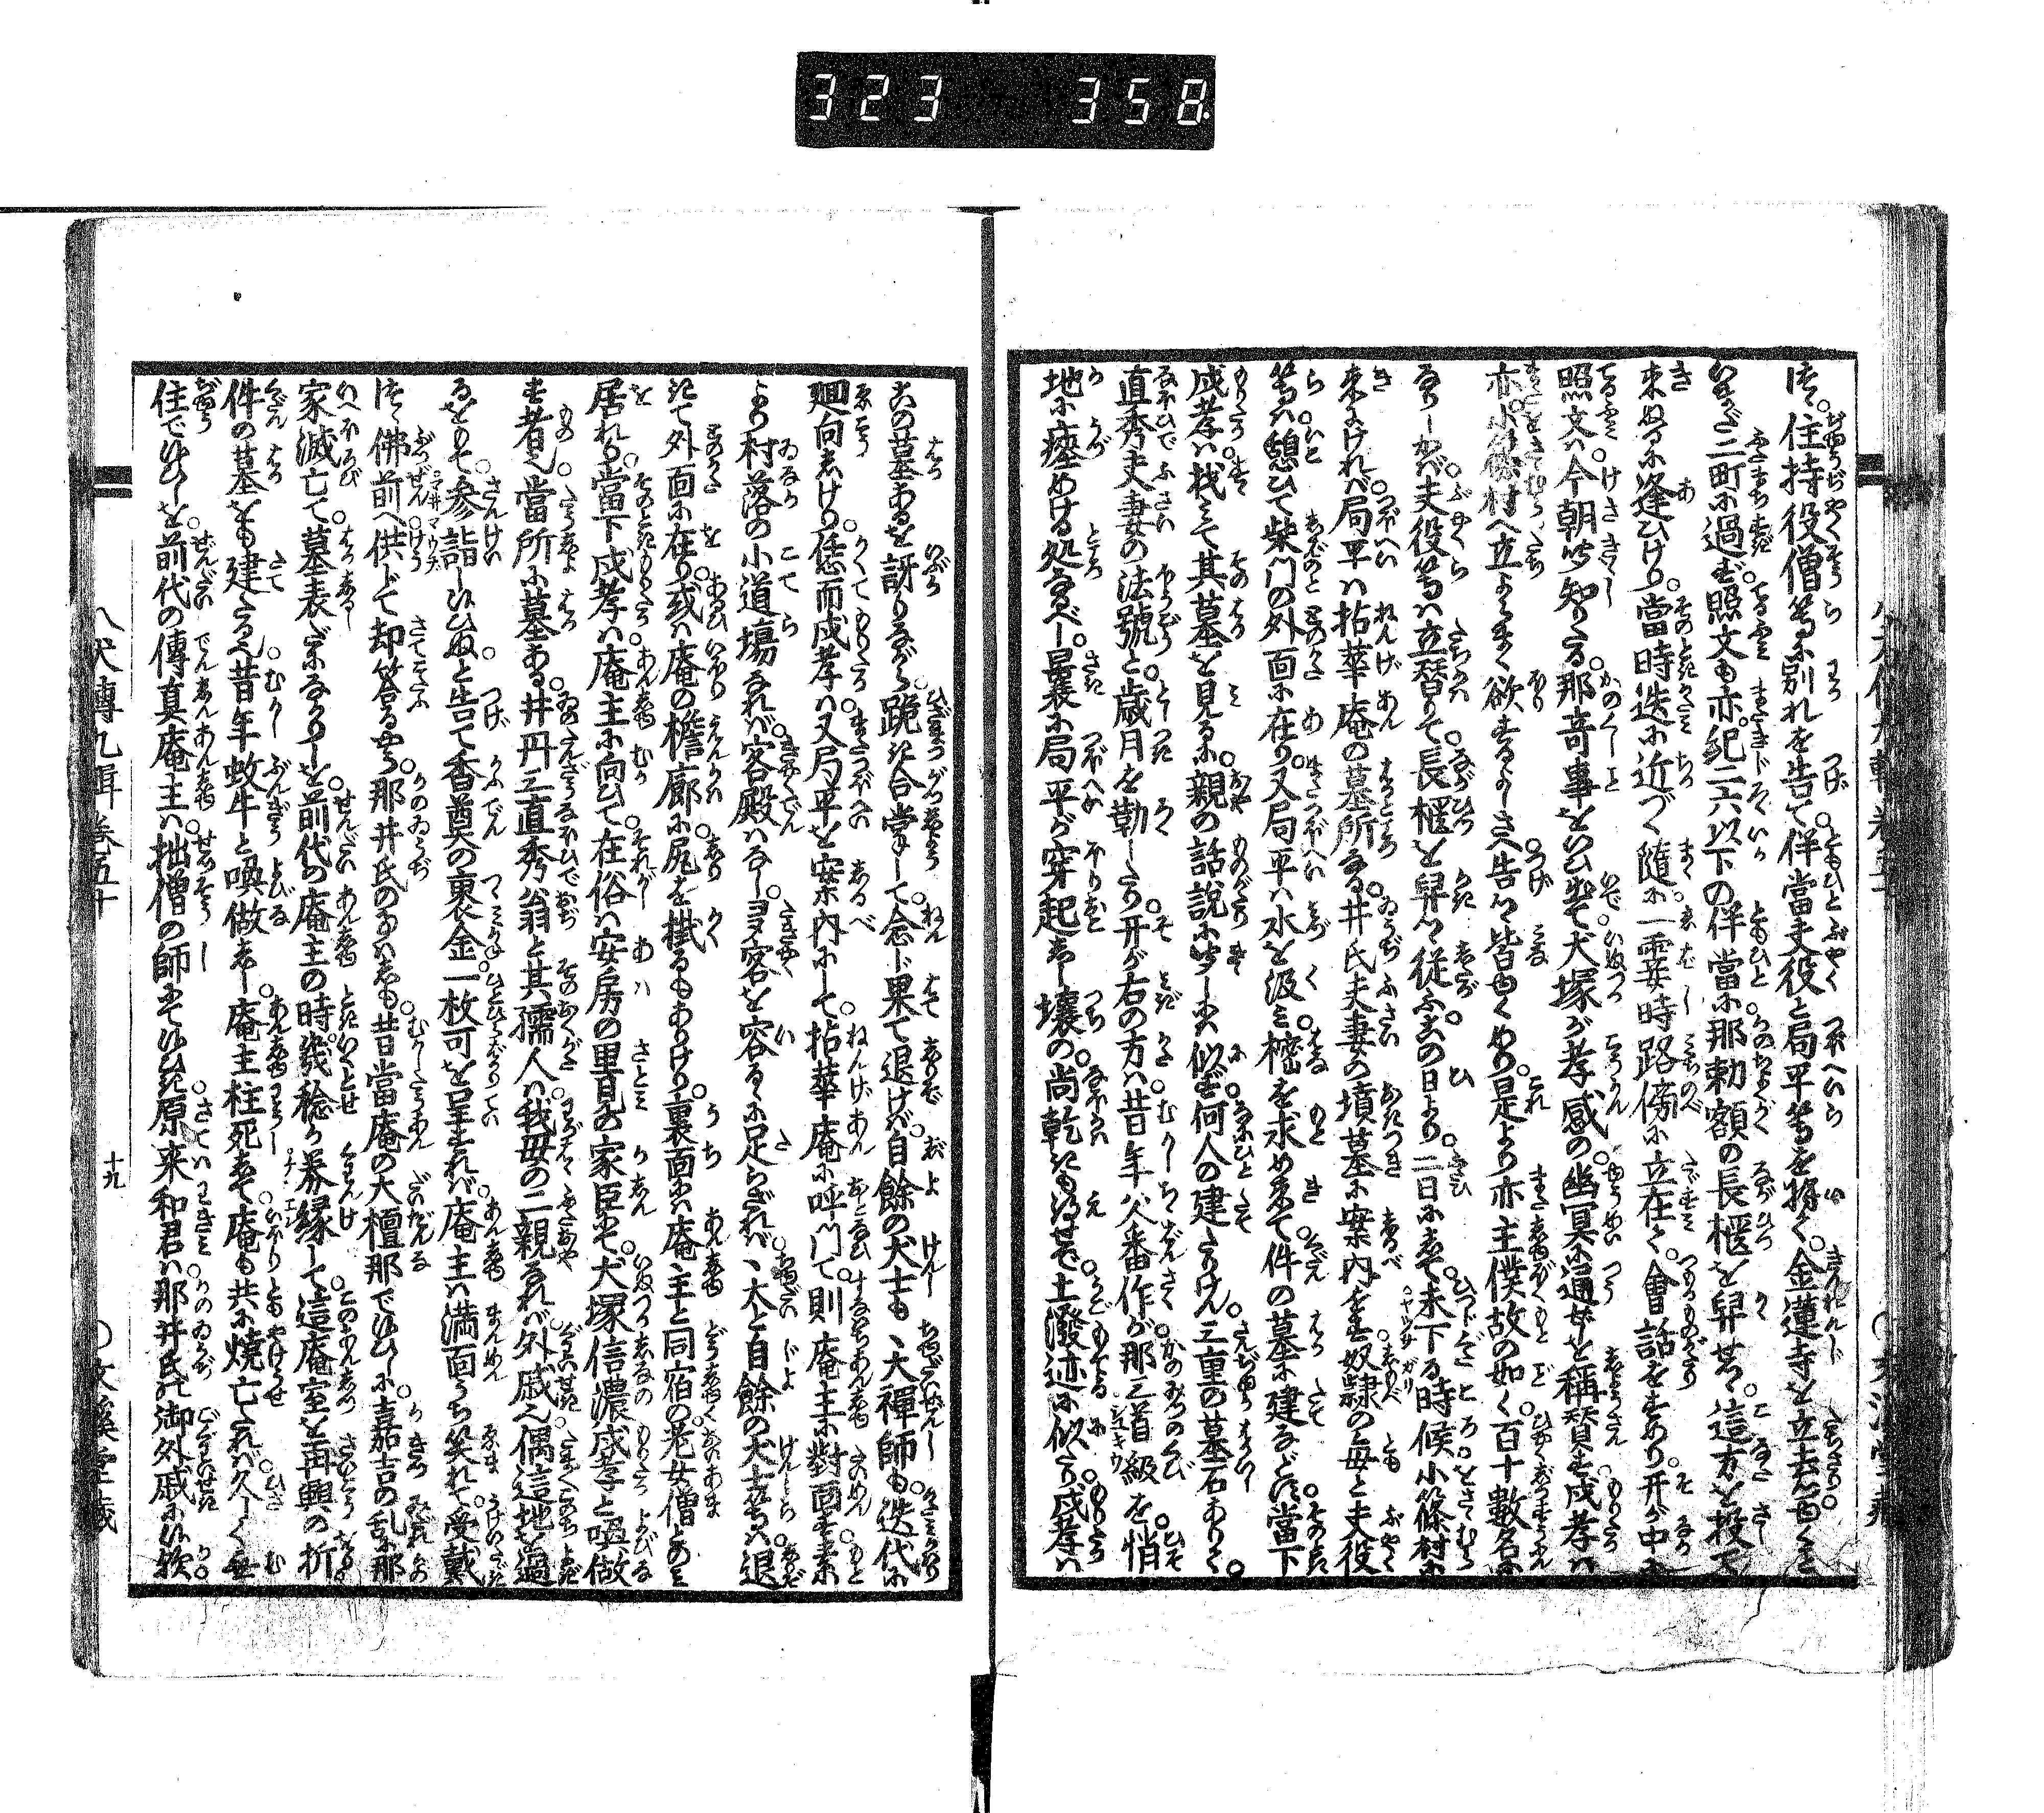 323 358
住持役僧等に別れを告て伴當夫役と局平等を將て金蓮寺を立去る
二町に過ず照文も亦紀二六以下の伴當に那勅額の長櫃を舁せて這方を投て
來ぬるに逢ひけり當時迭に近づく隨に一霎時路傍に立在て會話をすあり开が中に
照文は今朝皆知りたる那奇事をいひ出て犬塚が孝感の幽冥に通ぜしを稱賛す戌孝は
亦小篠村へ立よらまく欲するよしを告て皆ゆくめり是より亦主僕故の如く百十數名に
なりしかば夫役等は立替りて長櫃を舁て從ふこの日より二日にして未下る時候小篠村に
來にければ局平は拈華庵の墓所なる井氏夫妻の墳墓に案内をす奴隷の毎と夫役
等は憩ひて柴門の外面に在り又局平は水を汲み樒を求め來て件の墓に建などす當下
戌孝は找みて其墓を見るに親の話説に聞しには似ず何人の建たりけん三重の墓石ありて
直秀夫妻の法號と歳月を勒したり开が右の方は昔年八番作が那三首級を悄
地に瘞めける処なるべし曩に局平が穿起しし壌の尚乾きも得せで土潑迹に似たり戌孝は
この墓あるを訝りながら跪き合掌して念じ果て退けば自餘の犬士もゝ大禪師も迭代に
廻向しけり恁而戌孝は又局平を案内にして拈華庵に呼門て則庵主に對面す素
より村落の小道場なれば客殿はなしヨヌ客を容るゝに足らざればゝ大と自餘の犬士等は退
きて外面に在り或は庵の檐廊に尻を掛るもありけり裏面には庵主と同宿の老女僧とのみ
居れり當下戌孝は庵主に向ひて在俗は安房の里見の家臣にて犬塚信濃戌孝と喚做
す者也當所に墓ある井丹三直秀翁と其孺人は我母の二親なれば外戚也偶這地を過
るをもて參詣し侍ひぬと告て香奠の裹金一枚可を呈すれば庵主は満面うち笑れて受戴
きつゝ佛前へ供じて却答るやう那井氏のなハしも昔當庵の大檀那でゆひしに嘉吉の乱に那
家滅亡て墓表だになかりしを前代の庵主の時幾稔か募縁して這庵室を再興の折
件の墓をも建たる也昔年蚊牛と喚做しし庵主柱死して庵も共に燒亡たれば久しく無
住でゆひしを前代の傳真庵主は拙僧の師にてゆひき原来和君は那井氏の御外戚に侍ひ歟
八犬傳九輯卷五十
十九
文溪堂藏